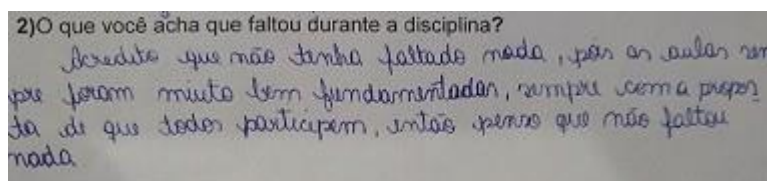 2)O que você acha que faltou durante a disciplina?
Acredito que não tenha faltado nada, pois as aulas sem
pre foram muito bem fundamentadas, sempre com a propos
ta de que todos participem, então penso que não faltou
nada